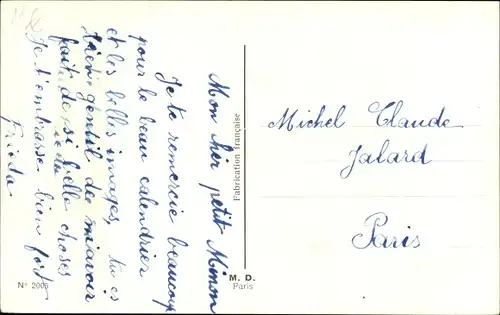 Mon cher petit Mimon
Je te remercie beaucoup
pour le beau calendrier
et les belles images, tu es
bien gentil de m'avoir
fait de si belle choses
Je t'embrasse bien fort
Frieda.
Fabrication française
Michel Claude
Jalard
Paris
M. D.
Paris
N° 2005